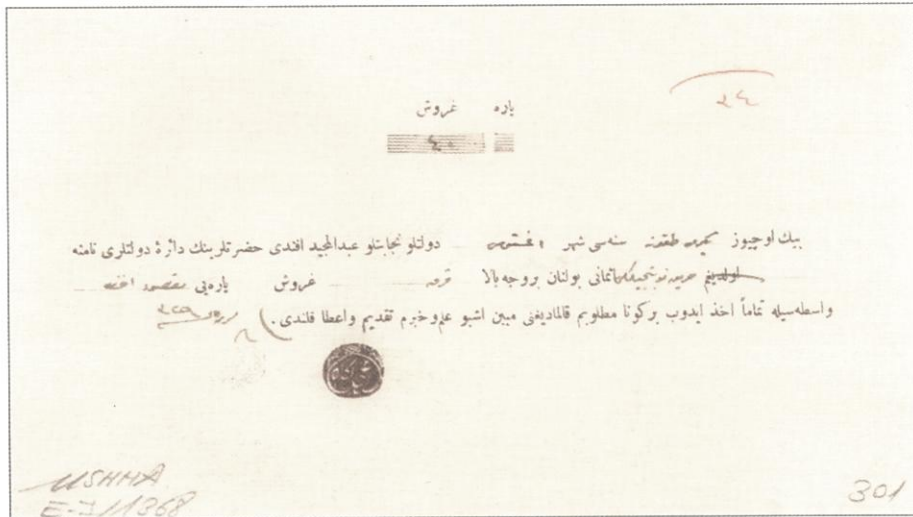 ٢٤
پاره غروش
٤٠
بيك اوچيوز يكرمى طقوز سنه‌سى شهر اغستوس دولتلو نجابتلو عبدالمجيد افندى حضرتلرينك دائرۀ دولتلرى نامنه
بولنان بروجه بالا قرق غروش پاره‌يى مقصود افندى
واسطه‌سيله تماماً اخذ ايدوب بر كونا مطلوبم قالماديغنى مبين اشبو علم و خبرم تقديم واعطا قلندى.
USHHA
E-I/1368
301